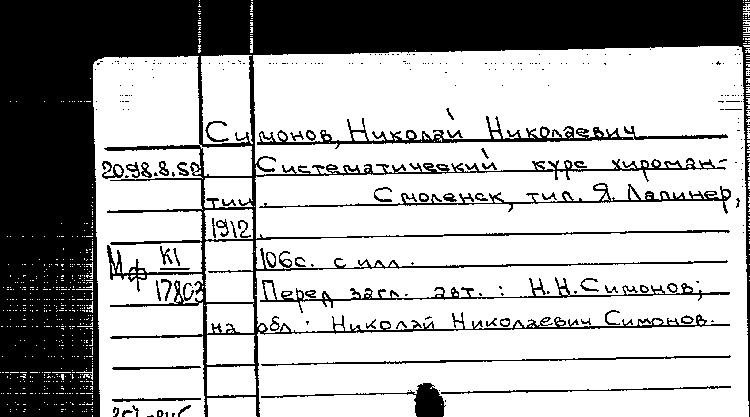 Симонов, Николай Николаевич
20.98.8.52. Систематический курс хироман-
тии. Смоленск, тип. Я. Лапинер,
1912.
Мф К1 106с. с илл.
17803 Перед загл. авт.: Н.Н.Симонов;
на обл.: Николай Николаевич Симонов.